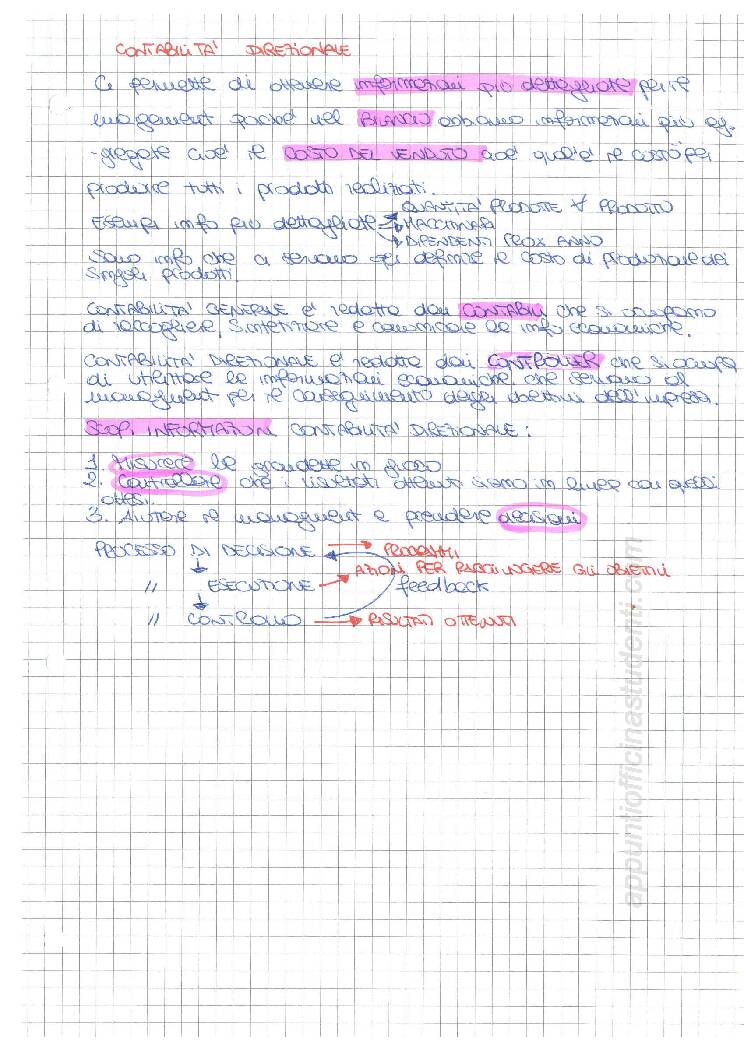 CONTABILITA' DIREZIONALE
Ci permette di ottenere informazioni più dettagliate per il
management poiché nel BILANCIO abbiamo informazioni più ag-
-gregate cioè il COSTO DEL VENDUTO cioè qual'è il costo per
produrre tutti i prodotti realizzati.
QUANTITA' PRODOTTE ∀ PRODOTTO
Esempi info più dettagliate MACCHINARI
DIPENDENTI PROX ANNO
Sono info che ci servono per definire il costo di produzione dei
singoli prodotti.
CONTABILITA' GENERALE è redatta dai CONTABILI che si occupano
di raccogliere, sintetizzare e comunicare le info economiche.
CONTABILITA' DIREZIONALE è redatta dai CONTROLLER che si occupa
di utilizzare le informazioni economiche che servono al
managment per il conseguimento degli obiettivi dell'impresa.
SCOPI INFORMAZIONI CONTABILITA' DIREZIONALE:
1. Misurare le grandezze in gioco
2. Controllare che i risultati ottenuti siano in linea con quelli
attesi.
3. Aiutare il managment a prendere decisioni
PROCESSO DI DECISIONE → PROGRAMMI
AZIONI PER RAGGIUNGERE GLI OBIETTIVI
" ESECUZIONE → feedback
" CONTROLLO → RISULTATI OTTENUTI
appuntiofficinastudenti.com